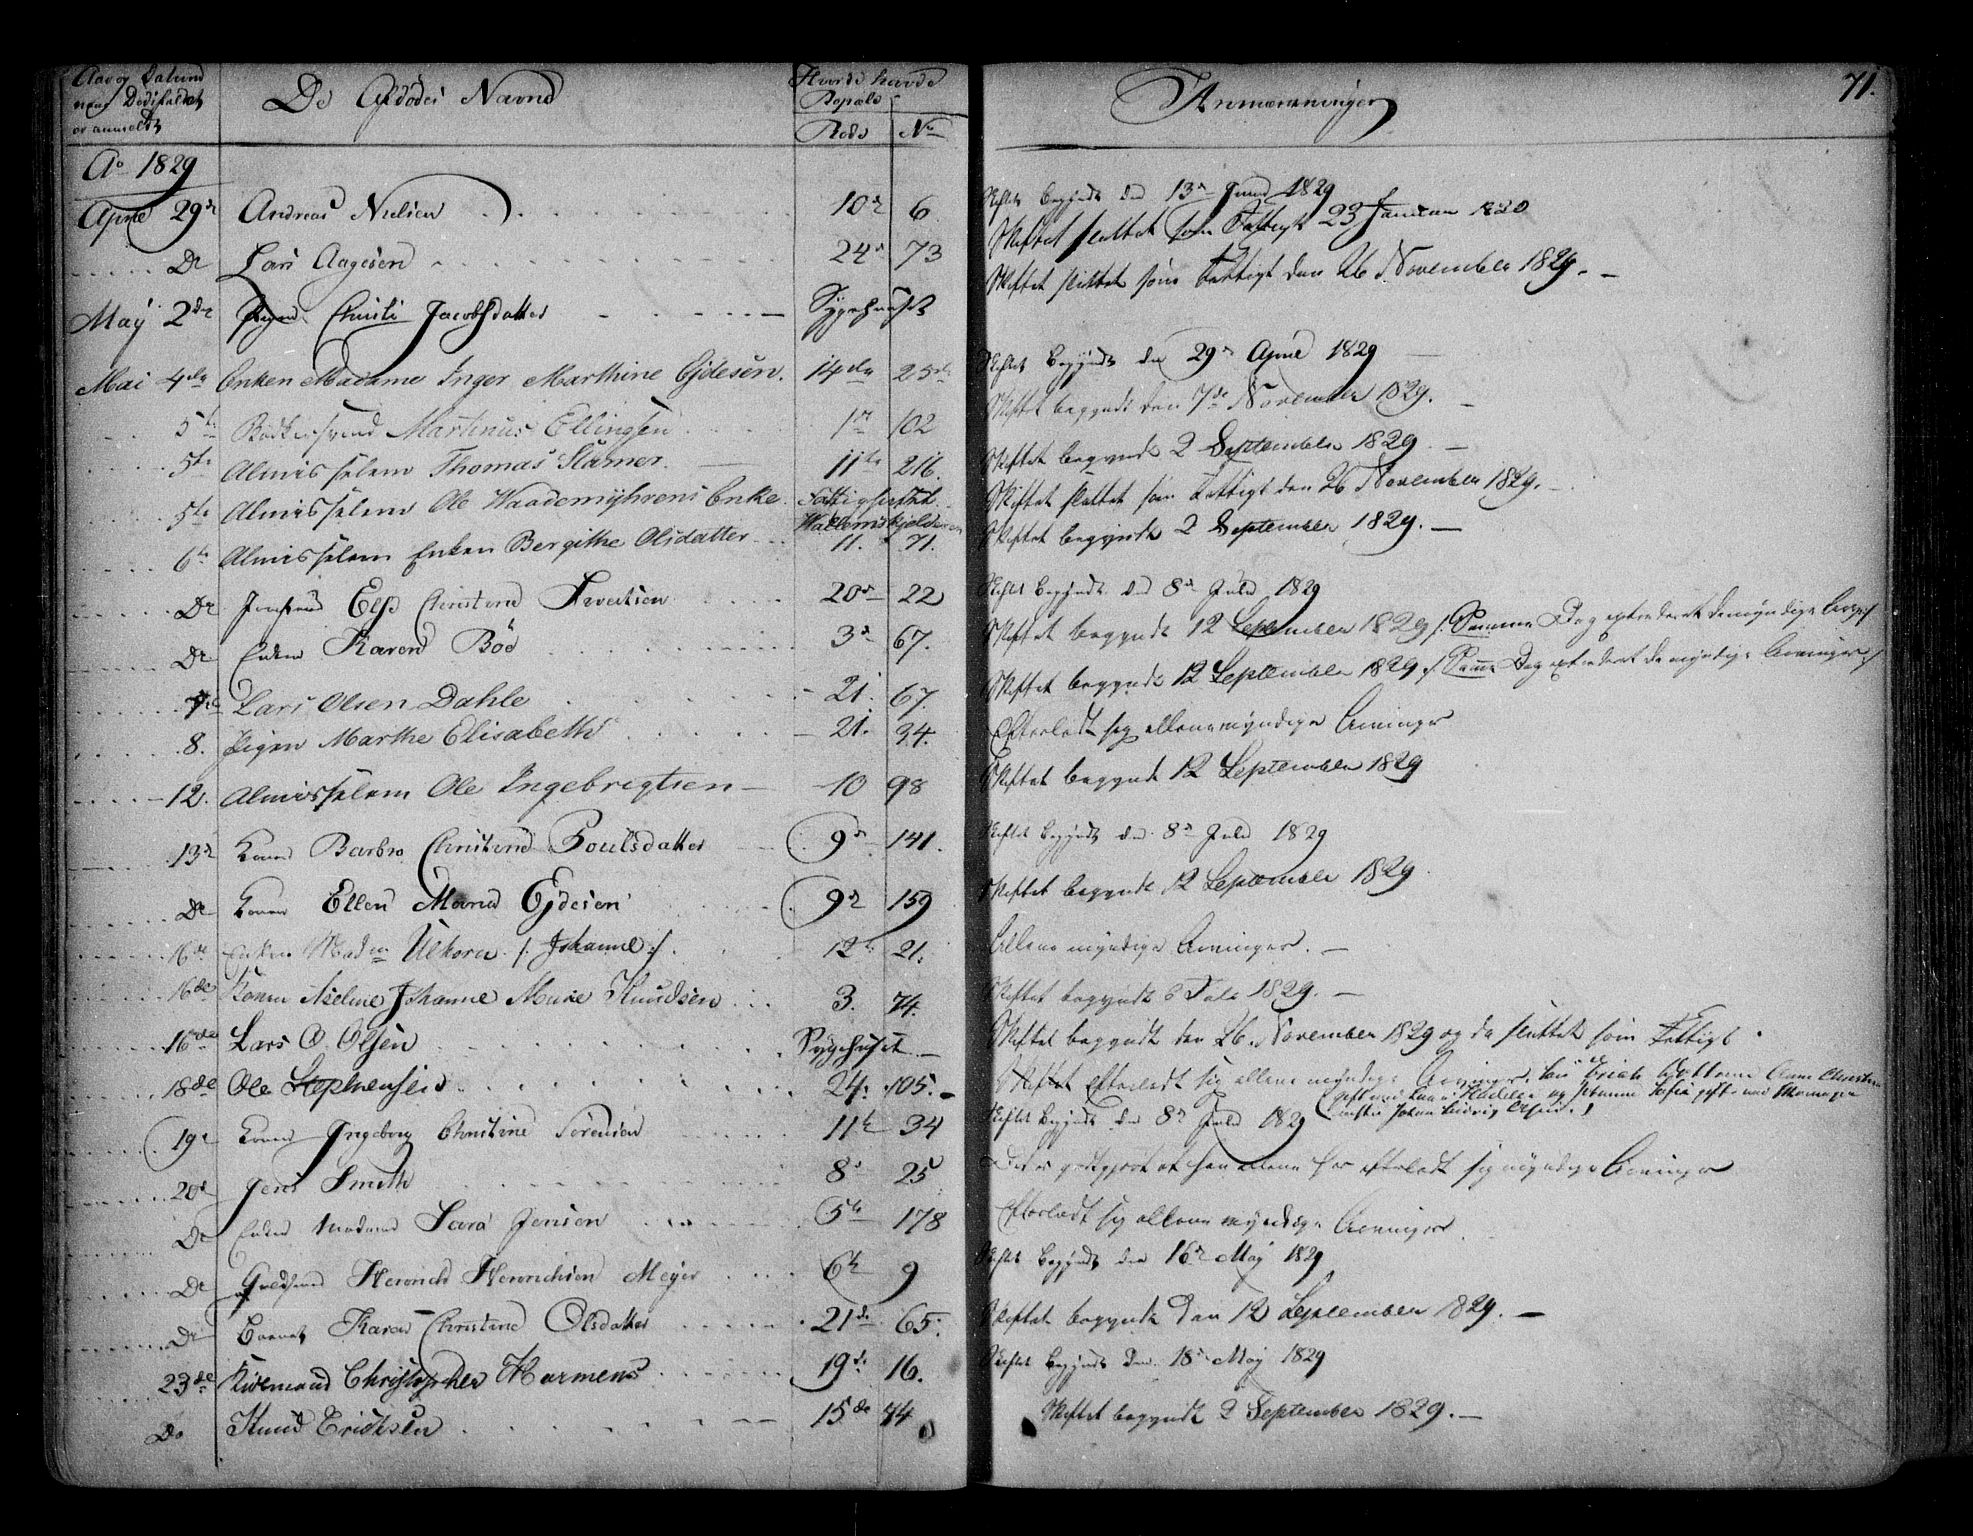 Aar og Datum
naar Dødsfaldet
er anmeldt
De Afdødes Navne
Hvor de havde
Bopæl
Rode No
Anmærkninger
71.
Ao 1829
April 29de Andreas Nielsen 10de 6 Skiftet begyndt den 13de Juni 1829
Skiftet sluttet som fattigt 23 Januar 1830
De Lars Aagesen 24de 73 Skiftet sluttet som fattigt den 26 November 1829.
May 2den Pigen Christi Jacobsdatter Sygehuuset
Mai 4de Enken Madame Inger Marthine Gjdesen. 14de 25de Skiftet begyndt den 29de April 1829
5te Bødkersvend Martinus Ellingsen 1ste 102 Skiftet begyndt den 7de November 1829.
5te Almisselem Thomas Stamer. 11te 216. Skiftet begyndt 2 September 1829
5te Almisselem Ole Waademyhrens Enke Fattighuset Skiftet sluttet som fattigt den 26 November 1829.
6te Almisselem Enken Bergithe Olsdatter 11. 71. Skiftet begyndt 2 September 1829.
De Jomfrue Else Christine Sivertsen 20de 22 Skiftet begyndt den 8de Juli 1829
De Enken Karen Bøe 3de 67. Skiftet begyndt 12 September 1829 /: Samme Dag extraderet de myndige Arvinger :/
7de Lars Olsen Dahle 21. 67. Skiftet begyndt 12 September 1829 /: Samme Dag extraderet de myndige Arvinger :/
8. Pigen Marthe Elisabeth 21. 34. Efterladt sig allene myndige Arvinger
12. Almisselem Ole Ingebrigtsen 10 98 Skiftet begyndt 12 September 1829
13de Konen Barbro Christine Poulsdatter 9de 141. Skiftet begyndt den 8de Juli 1829
De Konen Ellen Maria Gjdesen 9de 159 Skiftet begyndt 12 September 1829
16de Enken Madm /: Johanne :/ 12te 21. Allene myndige Arvinger.
16de Konen Aseline Johanne Marie Knudsen 3. 74. Skiftet begyndt 8 Juli 1829.
16de Lars O. Olsen Sygehuset Skiftet begyndt den 26. November 1829 og da sluttet som fattigt.
18de Ole Stephensen 24. 105. Skiftet Efterladt sig allene myndige Arvinger,
19de Konen Ingeborg Christine Sørensen 11te 34 Skiftet begyndt den 8de Juli 1829
20de Jens Smith 8de 25 Det er godtgjort at han allene har efterladt sig myndige Arvinger
De Enken Madame Sara Jensen 5te 178 Efterladt sig allene myndige Arvinger
De Henrich Henrichsen Meyer 6te 9 Skiftet begyndt den 16de May 1829
De Barnet Karen Christine Olsdatter 21de 65. Skiftet begyndt den 12 September 1829.
23de Christopher Harmens 19de 16. Skiftet begyndt den 18de May 1829
Do Knud Ericksen 15de 44 Skiftet begyndt 2 September 1829.